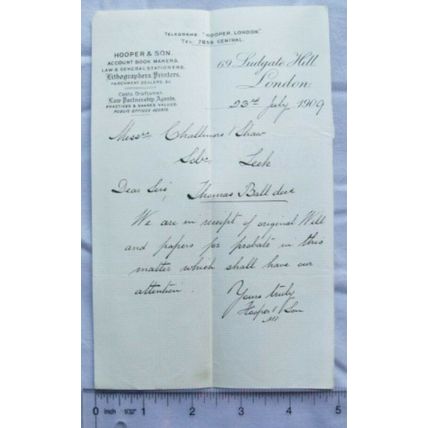 TELEGRAMS "HOOPER, LONDON."
TEL. 7859 CENTRAL.
HOOPER & SON.
ACCOUNT BOOK MAKERS,
LAW & GENERAL STATIONERS,
Lithographers, Printers,
PARCHMENT DEALERS, &c.
Costs Draftsmen,
Law Partnership Agents,
PRACTICES & SHARES VALUED.
PUBLIC OFFICES AGENTS.
69, Ludgate Hill
London,
23rd July 1909
Messrs Challinors & Shaw
Solrs Leek
Dear Sirs,
Thomas Ball decd
We are in receipt of original Will
and papers for probate in this
matter which shall have our
attention.
Yours truly
Hooper & Son
0 inch 1/32" 1 2 3 4 5